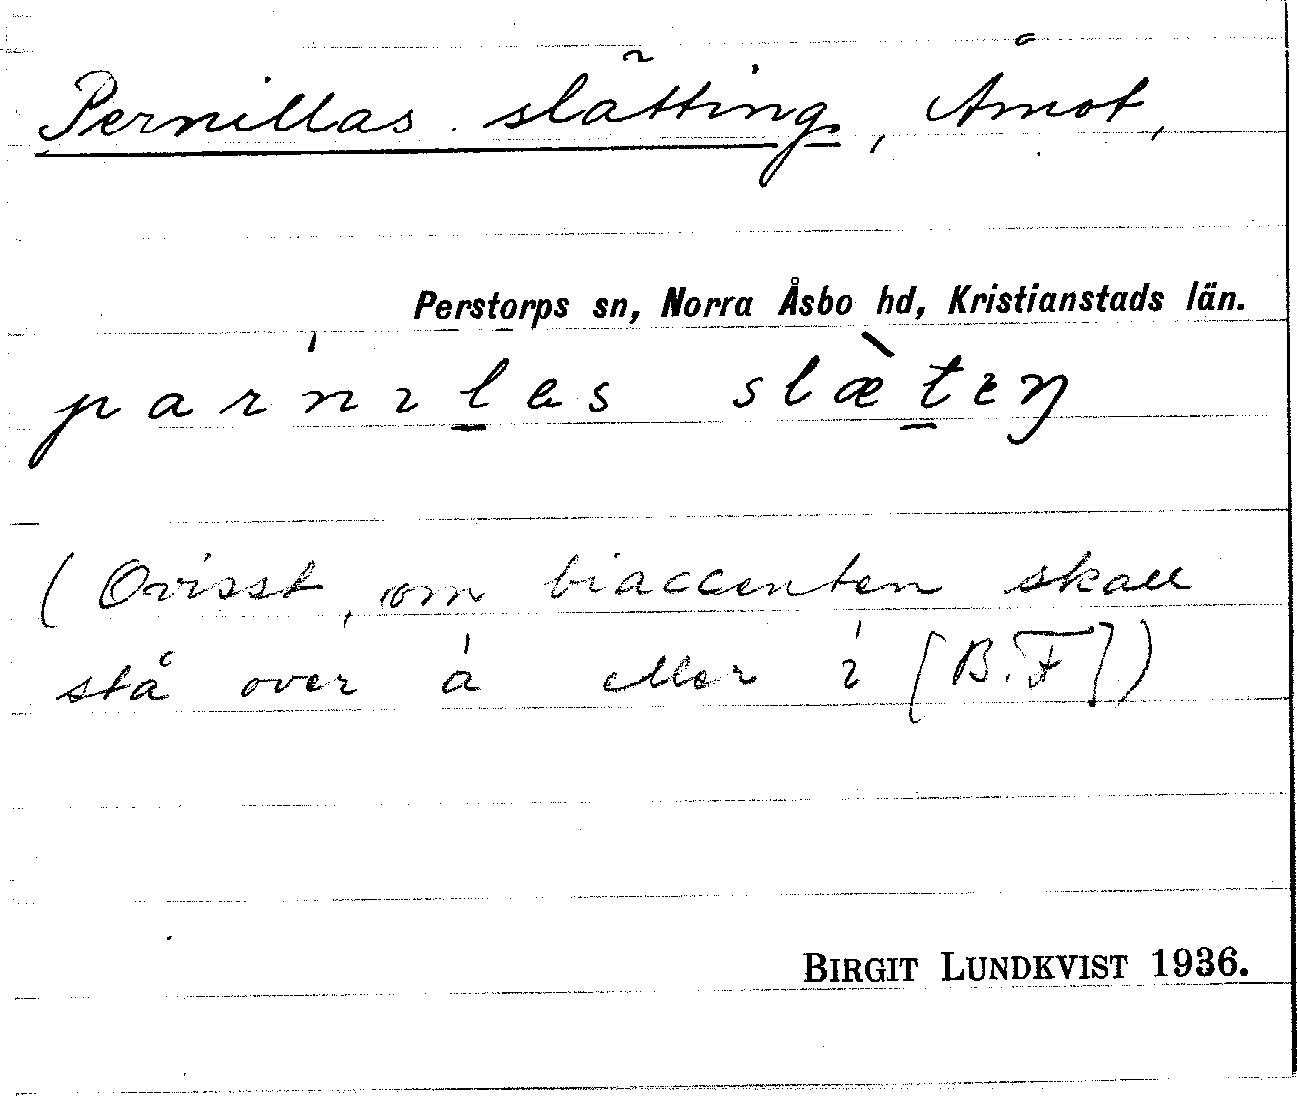 Pernillas slätting, Åmot,
Perstorps sn, Norra Åsbo hd, Kristianstads län.
parnı́l̲as slæ̀t̲eŋ
(Ovisst, om biaccenten skall
stå över á eller ı́ [B.F])
BIRGIT LUNDKVIST 1936.